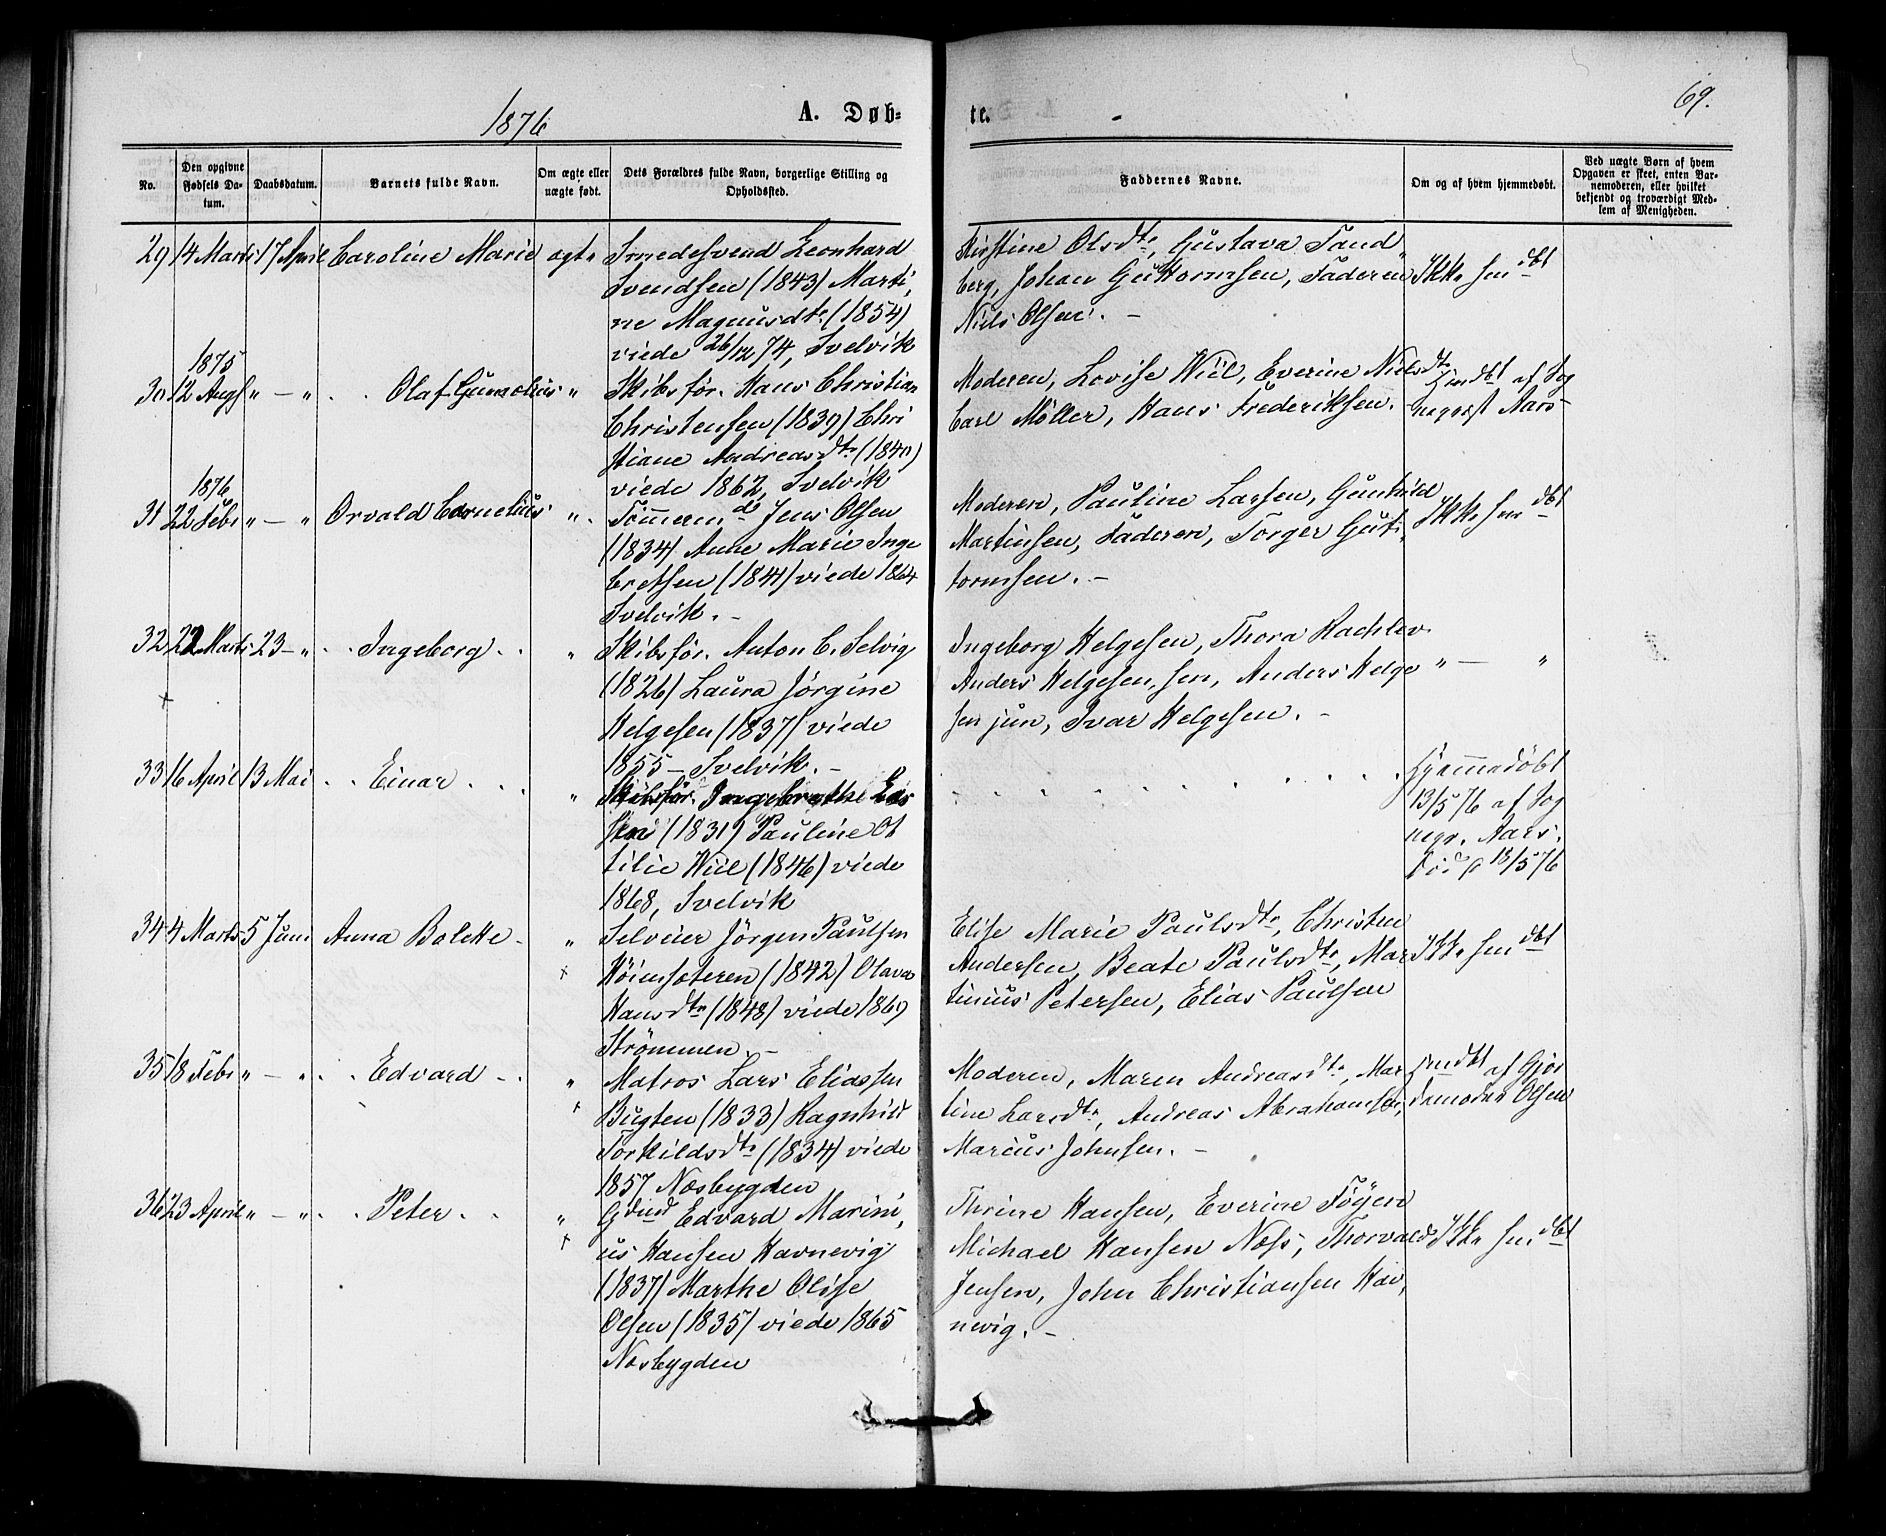 1876
A. Døb-
te.
69.
No.
Den opgivne Fødsels Da-
tum.
Daabsdatum.
Barnets fulde Navn.
Om ægte eller
uægte født.
Dets Forældres fulde Navn, borgerlige Stilling og
Opholdssted.
Faddernes Navne.
Om og af hvem hjemmedøbt.
Ved uægte Børn af hvem
Opgaven er skeet, enten Bar-
nemoderen, eller hvilket
bekjendt og troværdigt Med-
lem af Menigheden.
29 14 Marts 17 April Caroline Marie ægte
Smedesvend Leonhard
Svendsen (1843) Marti,
ne Magnusdtr (1854)
viede 26/12 74, Svelvik
Kirstine Olsdtr, Gustava Sand,
berg, Johan Guttormsen, Faderen
Niels Olsen. -
Ikke hmdbt
1875
30 12 Augs " - " Olaf Gunolius "
Skibsfør. Hans Christian
Christensen (1839) Chri
stiane Andreasdtr (1840)
viede 1862, Svelvik
Moderen, Lovise Wiil, Everine Nielsdtr
Carl Møller, Hans Frederiksen. -
Hmdbt af Sog
neprest Aars -
1876
31 22 Febr " - " Orvald Cornelius "
Tømmermd Jens Olsen
(1834) Anne Marie Inge
bretsen (1841) viede 1864
Svelvik. -
Moderen, Pauline Larsen, Gunhild
Martinsen, Faderen, Torger Gut,
tormsen. -
Ikke hmdbt
32 22 Marts 23 - " Ingeborg "
Skibsfør. Anton C. Selvig
(1826) Laura Jørgine
Helgesen (1837) viede
1855 - Svelvik. -
Ingeborg Helgesen, Thora Rachlev
Anders Helgesen, sen, Anders Helge
sen jun, Ivar Helgesen. -
" - "
33 16 April 13 Mai Einar "
Skibsfør.
(1831) Pauline Ot
tilie Wiil (1846) viede
1868, Svelvik
Hjemmedøbt
13/5 76 af Sog
nepr. Aars.
18/5 76
34 4 Marts 5 Juni Anna Bolette - "
Selveier Jørgen Paulsen
(1842) Olava
Hansdtr (1848) viede 1869
Strømmen. -
Elise Marie Paulsdtr, Christen
Andersen, Beate Paulsdtr, Mar
tinius Petersen, Elias Paulsen
Ikke hmdbt
35 18 Febr " - " Edvard - "
Matros Lars Eliassen
Bugten (1833) Ragnhild
Torkildsdtr (1834) viede
1857 Næsbygden
Moderen, Maren Andreasdtr, Mar
tine Larsdtr, Andreas Abrahamsen,
Marcus Johnsen. -
Hmdbt af Gjor
demoder Olsen
36 23 April " - " Peter "
Gdmd Edvard Marini,
us Hansen Havnevig
(1837) Marthe Olise
Olsen (1835) viede 1865
Næsbygden
Thrine Hansen, Everine Føyen
Michael Hansen Næss, Thorvald
Jensen, John Christiansen Hav,
nevig. -
Ikke hmdbt